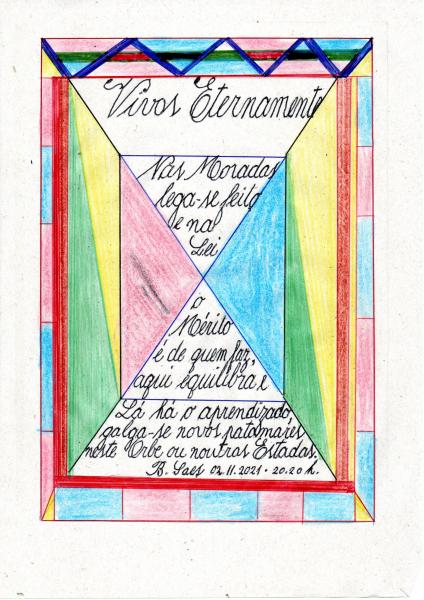 Vivos Eternamente
Nas Moradas
lega-se feito
e na
Lei
o
Mérito
é de quem faz,
aqui equilibra e
Lá há o aprendizado,
galga-se novos patamares
neste Orbe ou noutras Estadas.
B. Saes 02.11.2021 - 20.20 h.